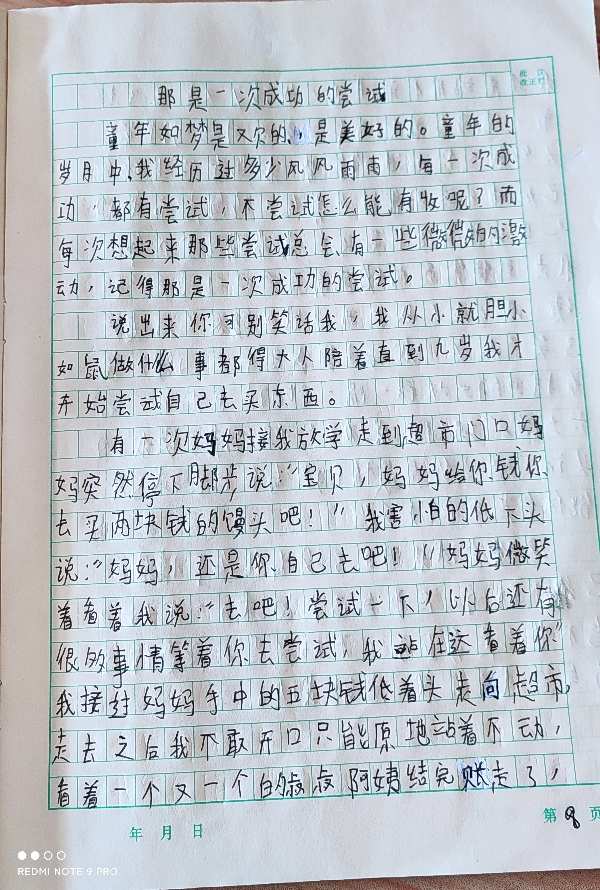 批改
订正栏
那是一次成功的尝试
童年如梦是欢的,是美好的。童年的
岁月中,我经历过多少风风雨雨,每一次成
功,都有尝试,不尝试怎么能有收呢?而
每次想起来那些尝试总会有一些微微的激
动,记得那是一次成功的尝试。
说出来你可别笑话我,我从小就胆小
如鼠做什么事都得大人陪着直到九岁我才
开始尝试自己去买东西。
有一次妈妈接我放学走到超市门口妈
妈突然停下脚步,说:“宝贝,妈妈给你钱你
去买两块钱的馒头吧!”我害怕的低下头
说:“妈妈,还是你自己去吧!”妈妈微笑
着看着我说:“去吧!尝试一下,以后还有
很多事情等着你去尝试,我站在这看着你”
我接过妈妈手中的五块钱低着头走向超市,
走去之后我不敢开口只能原地站着不动,
看着一个又一个的叔叔阿姨结完账走了,
年 月 日
第 8 页
REDMI NOTE 9 PRO